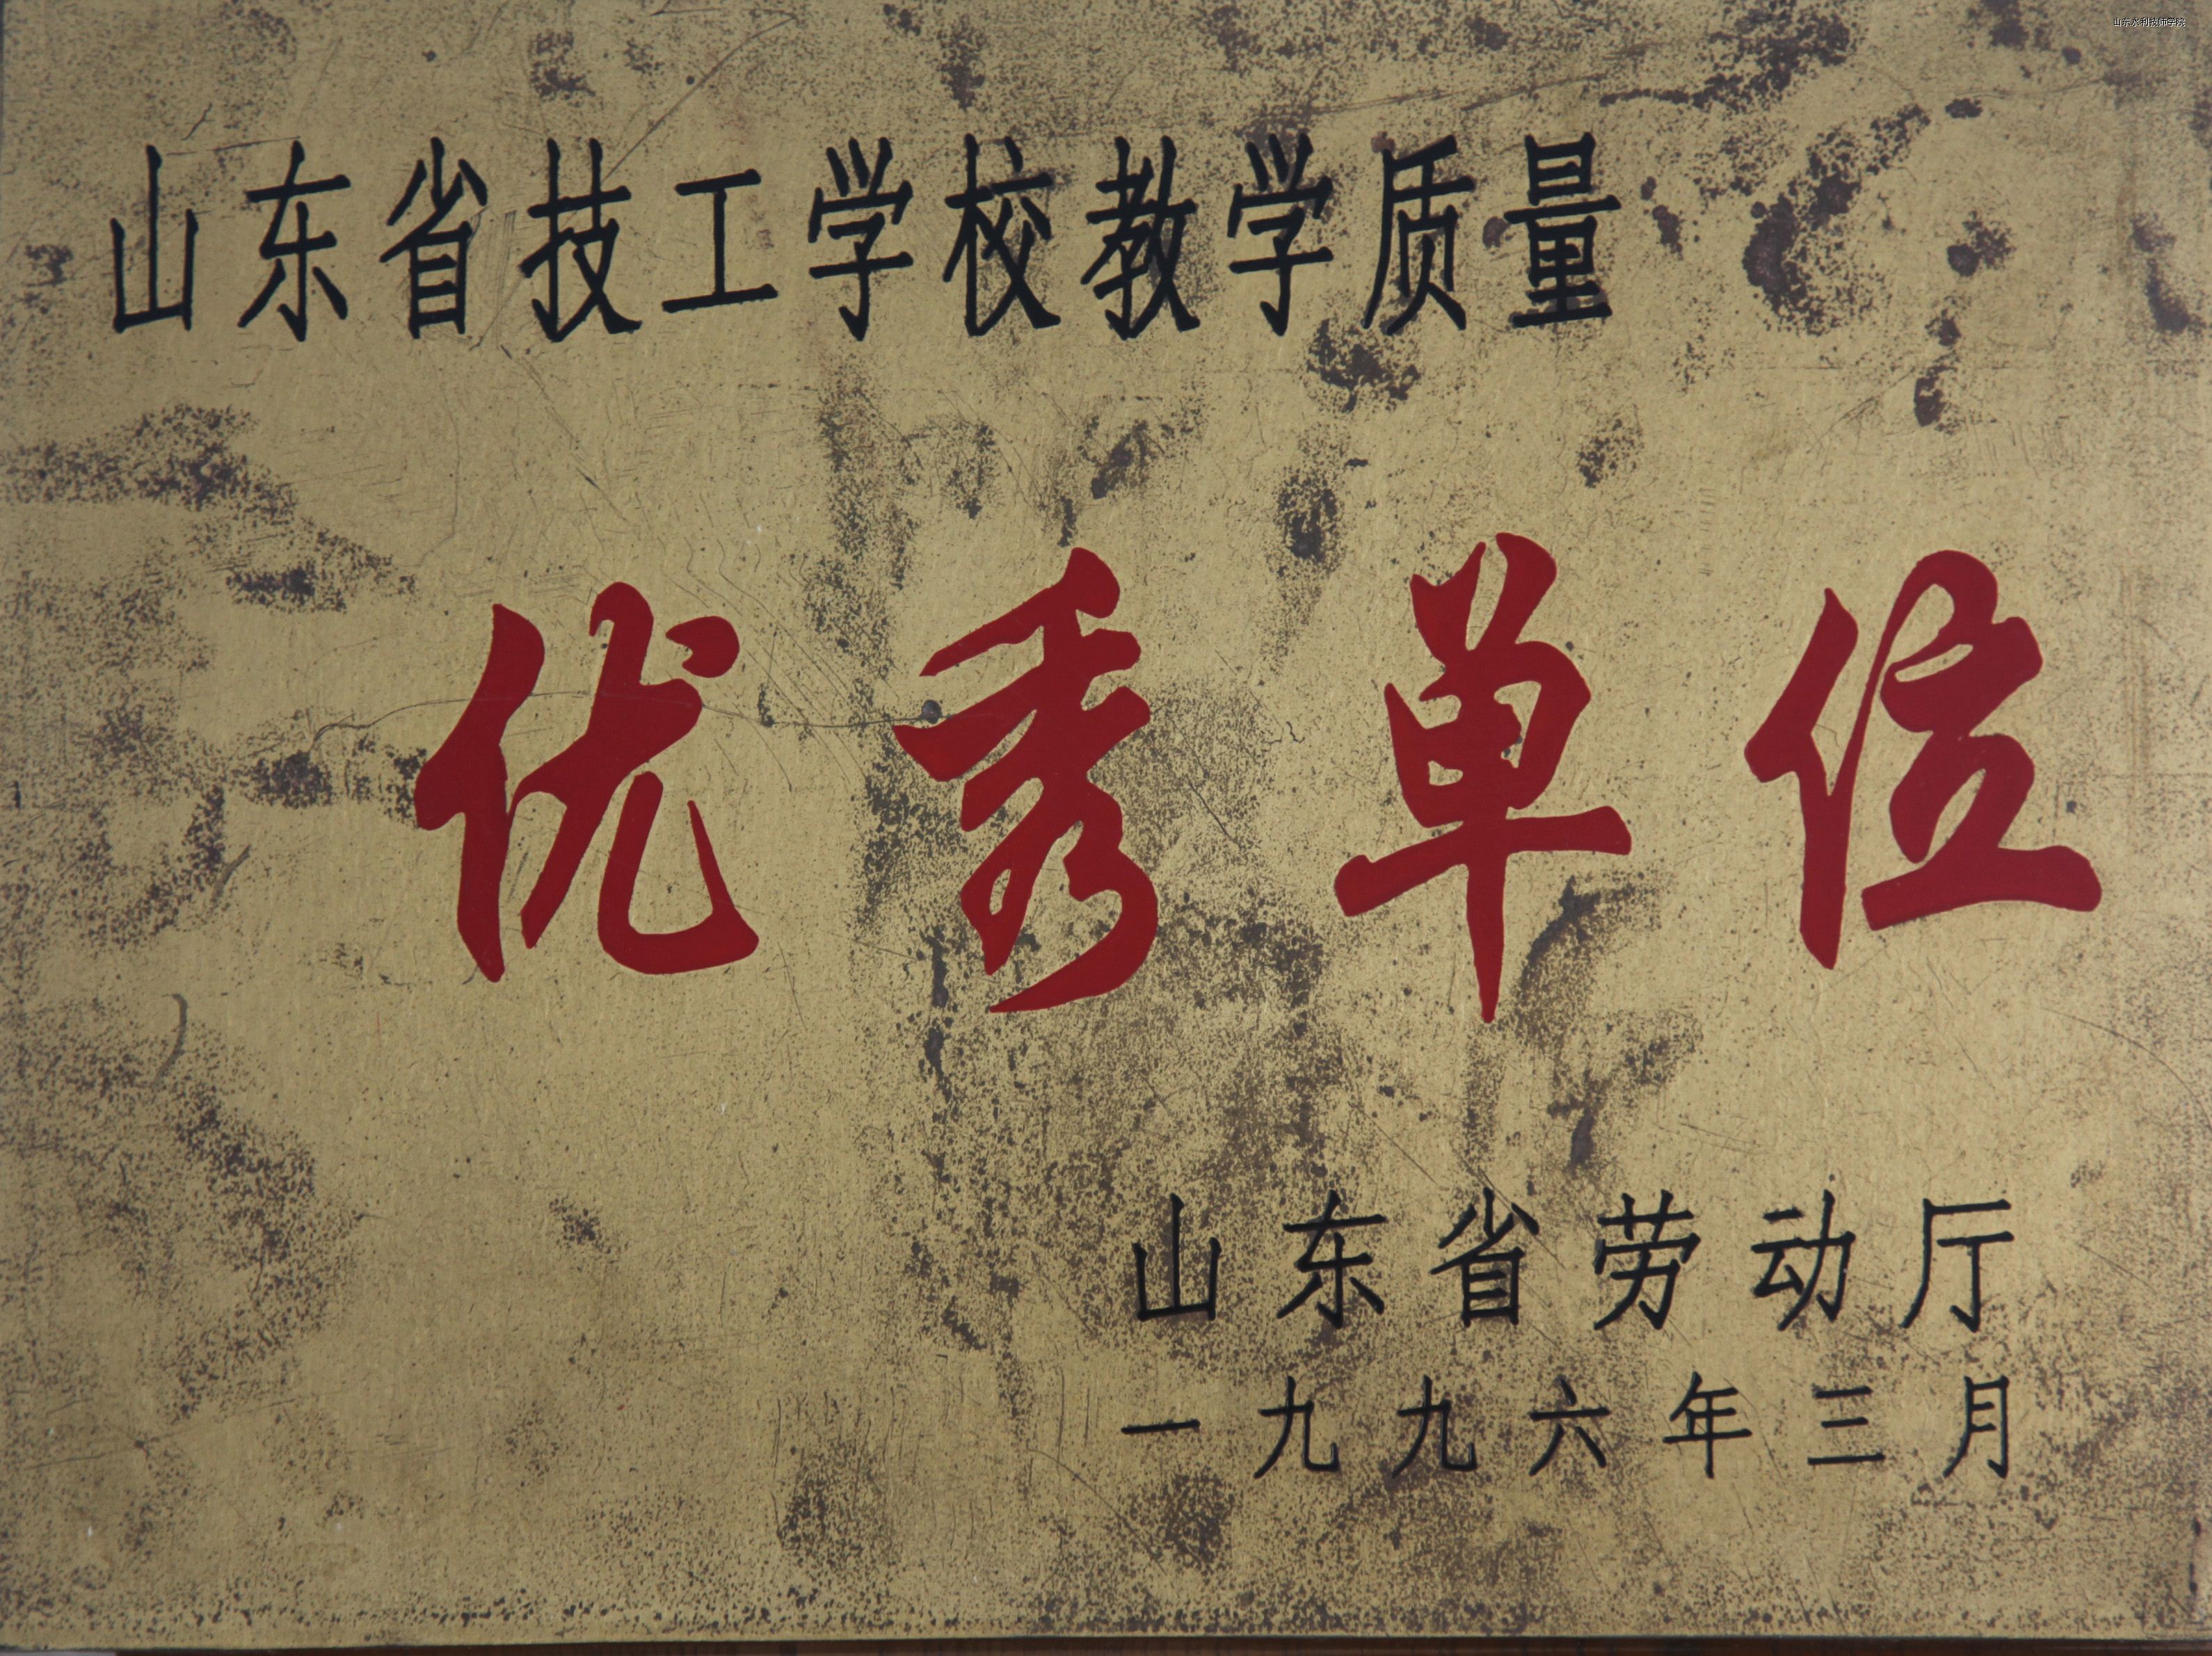 山东水利技师学院
山东省技工学校教学质量
优秀单位
山东省劳动厅
一九九六年三月